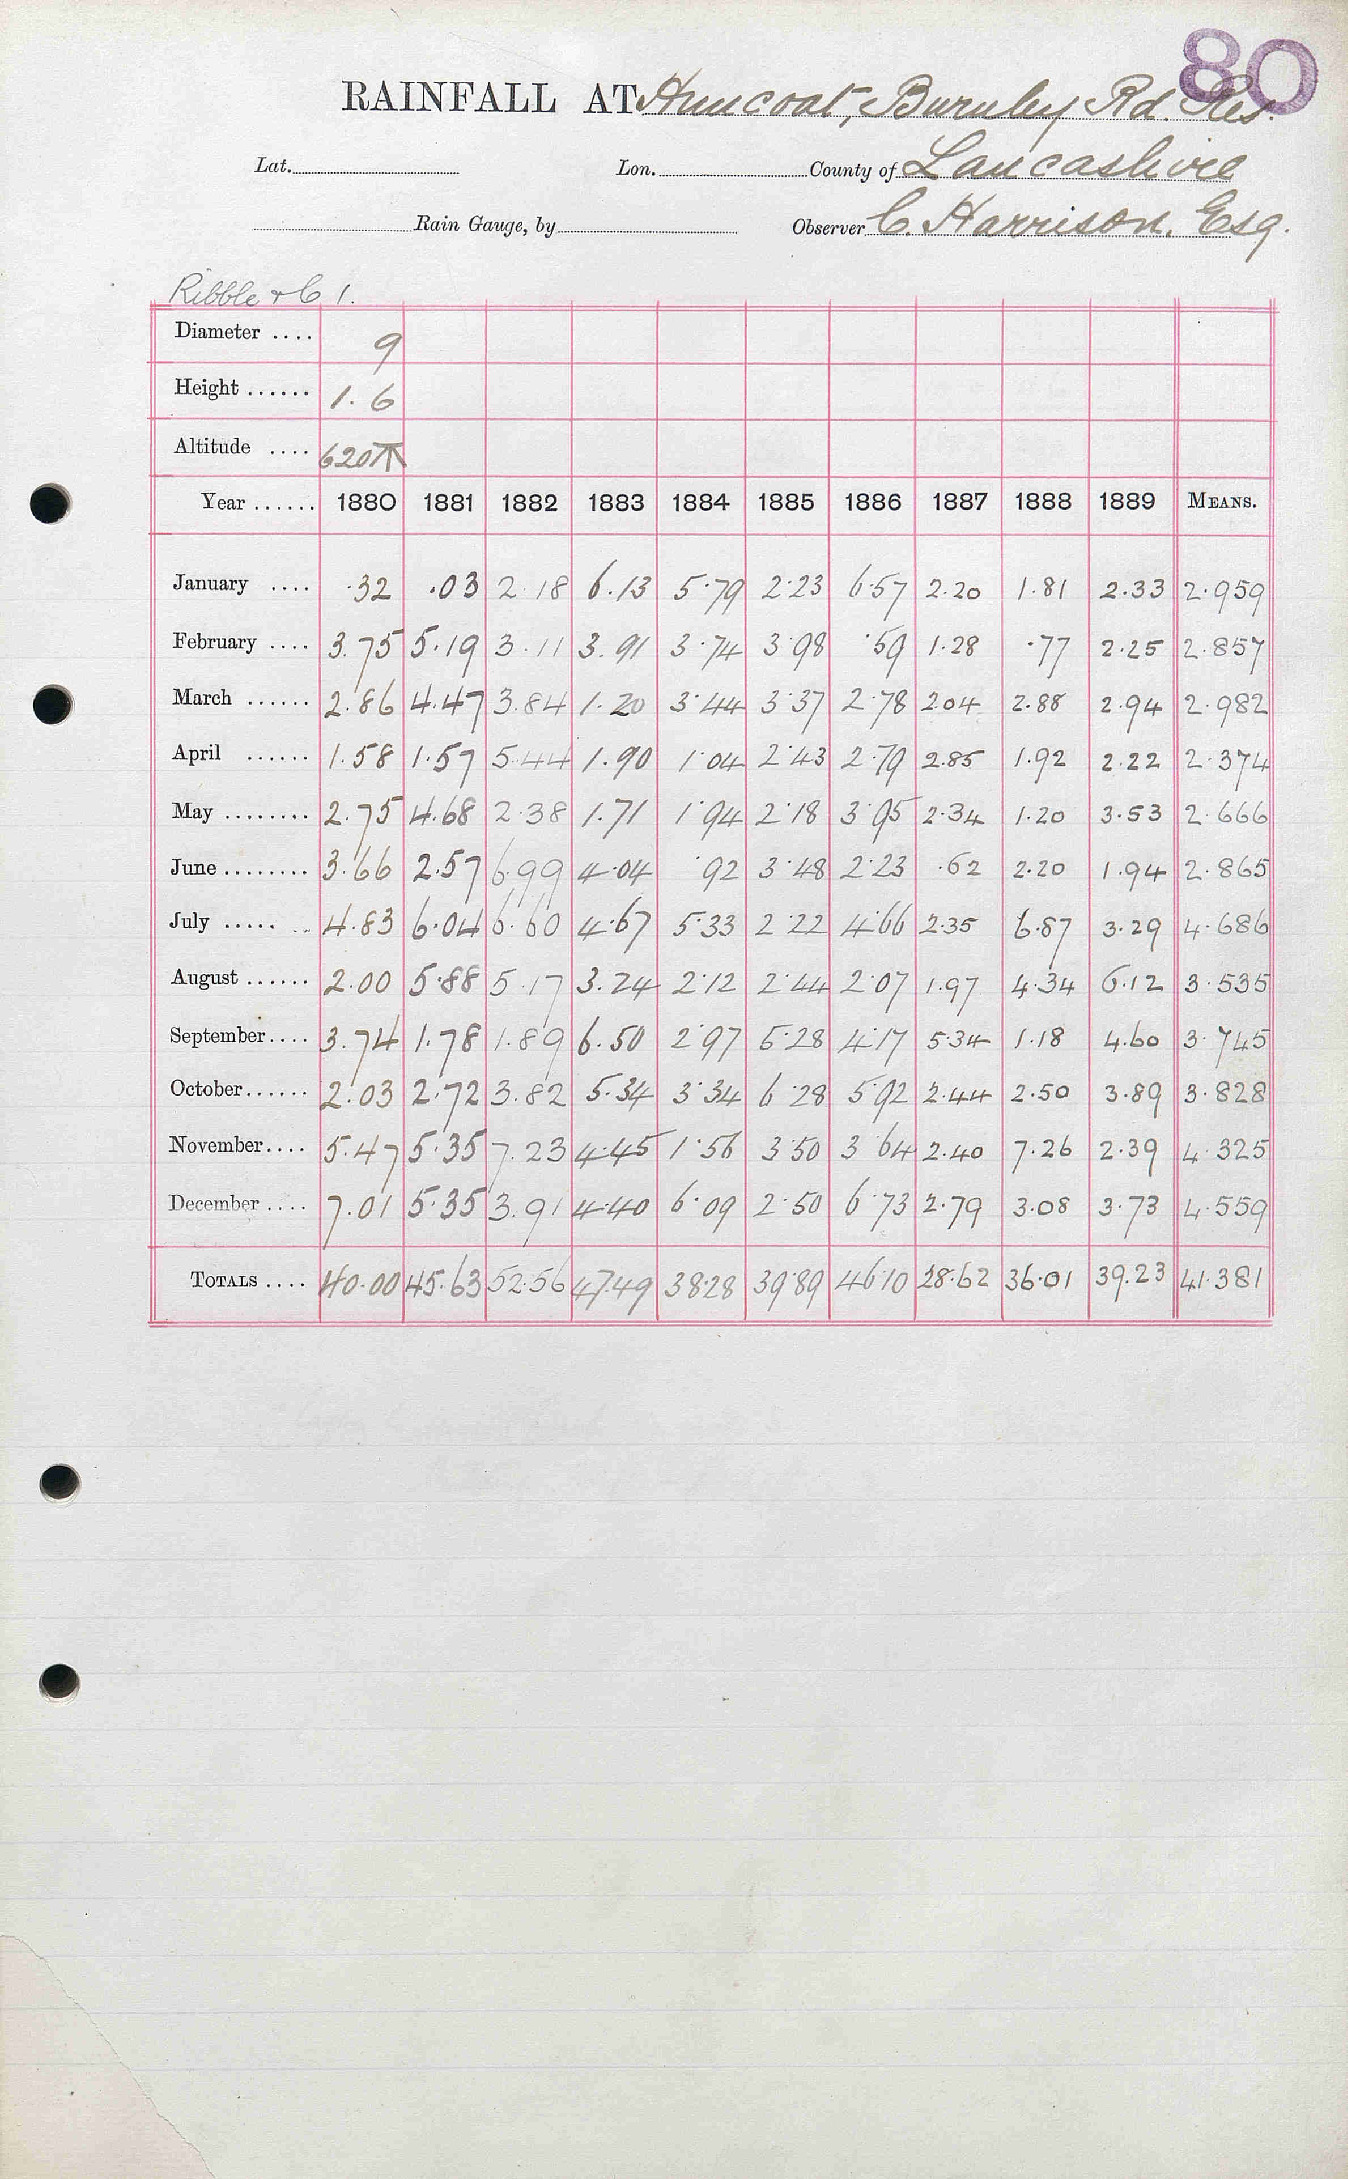 80
RAINFALL AT Huncoat, Burnley Rd. Res.
Lat. Lon. County of Lancashire
Rain Gauge, by Observer C. Harrison, Esq.
Ribble + C 1.
Diameter .... 9
Height ...... 1.6
Altitude .... 620
Year ...... 1880 1881 1882 1883 1884 1885 1886 1887 1888 1889 MEANS.
January .... .32 .03 2.18 6.13 5.79 2.23 6.57 2.20 1.81 2.33 2.959
February .... 3.75 5.19 3.11 3.91 3.74 3.98 .59 1.28 .77 2.25 2.857
March ...... 2.86 4.47 3.84 1.20 3.44 3.37 2.78 2.04 2.88 2.94 2.982
April ...... 1.58 1.57 5.44 1.90 1.04 2.43 2.79 2.85 1.92 2.22 2.374
May ........ 2.75 4.68 2.38 1.71 1.94 2.18 3.95 2.34 1.20 3.53 2.666
June ........ 3.66 2.57 6.99 4.04 .92 3.48 2.23 .62 2.20 1.94 2.865
July ..... .. 4.83 6.04 6.60 4.67 5.33 2.22 4.66 2.35 6.87 3.29 4.686
August ...... 2.00 5.88 5.17 3.24 2.12 2.44 2.07 1.97 4.34 6.12 3.535
September.... 3.74 1.78 1.89 6.50 2.97 5.28 4.17 5.34 1.18 4.60 3.745
October...... 2.03 2.72 3.82 5.34 3.34 6.28 5.92 2.44 2.50 3.89 3.828
November.... 5.47 5.35 7.23 4.45 1.56 3.50 3.64 2.40 7.26 2.39 4.325
December .... 7.01 5.35 3.91 4.40 6.09 2.50 6.73 2.79 3.08 3.73 4.559
TOTALS .... 40.00 45.63 52.56 47.49 38.28 39.89 46.10 28.62 36.01 39.23 41.381